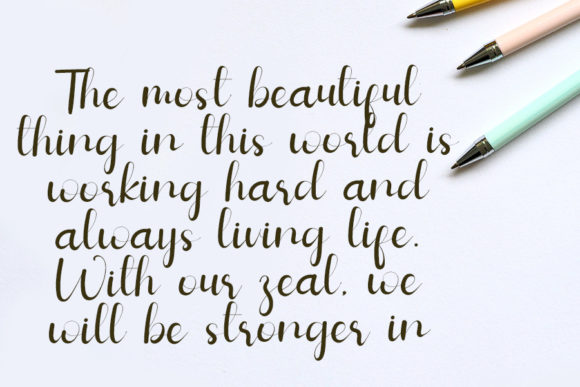 The most beautiful
thing in this world is
working hard and
always living life.
With our zeal, we
will be stronger in